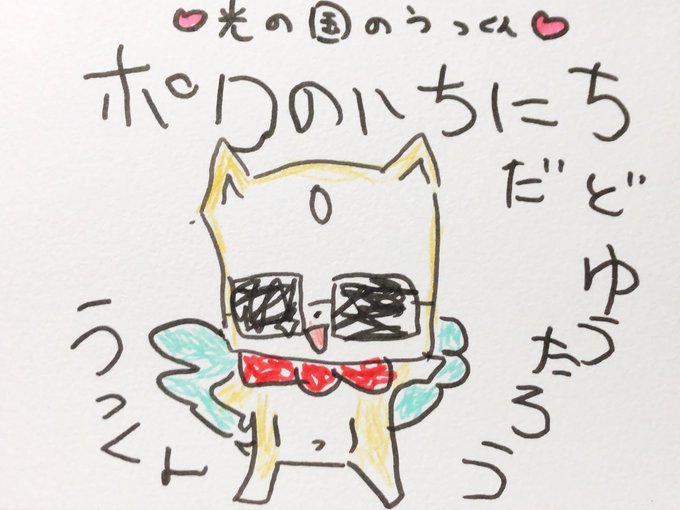 光の国のうっくん
ポワのいちにち
だど
ゆうたろう
うっくん